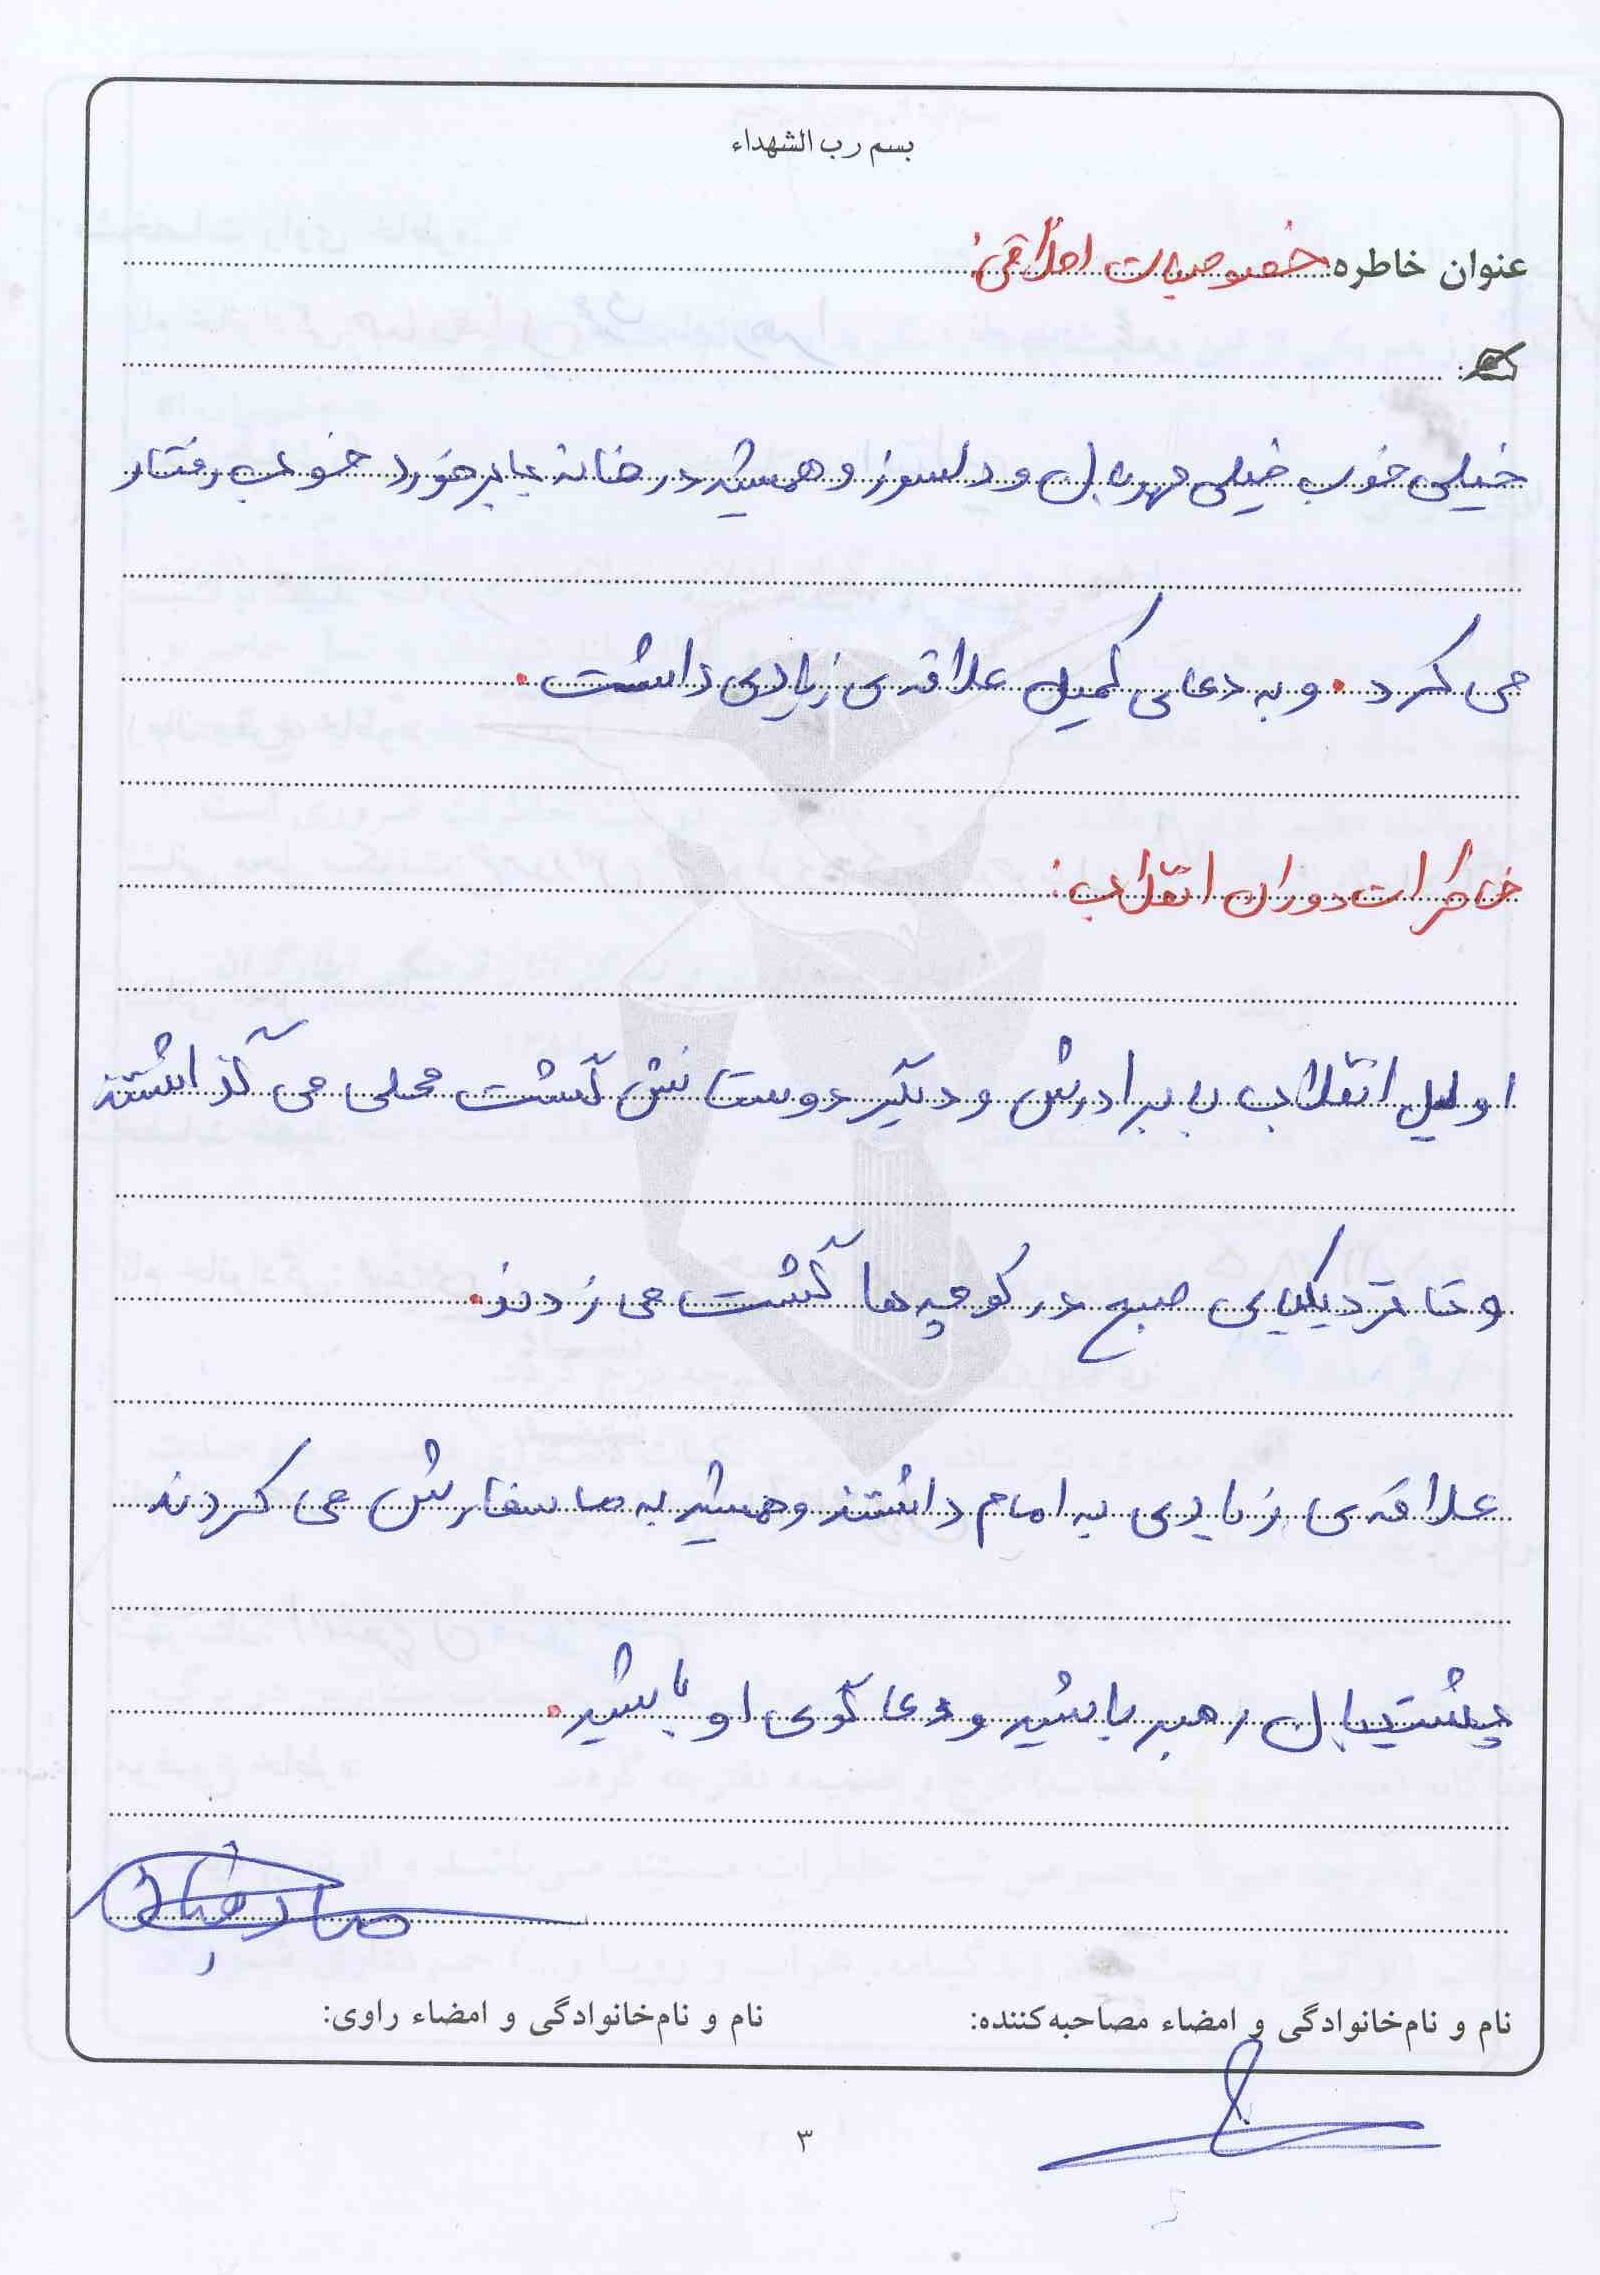 بسم رب الشهداء
عنوان خاطره خصوصیات اخلاقی:
خیلی خوب خیلی مهربان و دلسوز و همیشه در خانه با برخورد خوب رفتار
می کرد. و به دعای کمیل علاقه ی زیادی داشت.
خاطرات دوران انقلاب:
اوایل انقلاب با برادرش و دیگر دوستانش گشت محلی می گذاشتند
و تا نزدیکیای صبح در کوچه ها گشت می زدند.
علاقه ی زیادی به امام داشتند و همیشه به ما سفارش می کردند
پشتیبان رهبر باشید و دعا گوی او باشید.
نام و نام‌خانوادگی و امضاء مصاحبه‌کننده: نام و نام‌خانوادگی و امضاء راوی:
۳